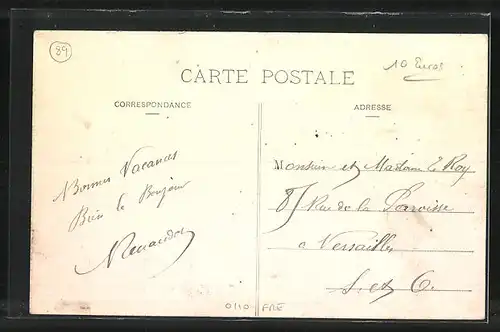 89
10 Euros
CARTE POSTALE
CORRESPONDANCE
ADRESSE
Bonnes Vacances
Bien le Bonjour
Monsieur et Madame Le Roy
87 Rue de la Paroisse
à Versailles
S. et O.
0110 FRE